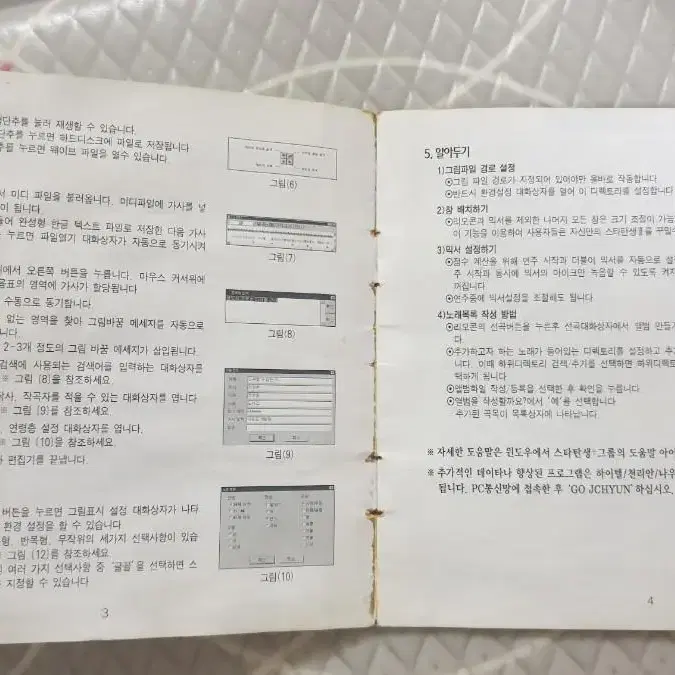 단추를 눌러 재생할 수 있습니다.
단추를 누르면 하드디스크에 파일로 저장됩니다
를 누르면 웨이브 파일을 열수 있습니다.
서 미디 파일을 불러옵니다. 미디파일에 가사를 넣
이 됩니다.
들어 완성형 한글 텍스트 파일로 저장한 다음 가사
누르면 파일열기 대화상자가 자동으로 동기시켜
위에서 오른쪽 버튼을 누릅니다. 마우스 커서위에
음표의 영역에 가사가 할당됩니다
수동으로 동기합니다.
없는 영역을 찾아 그림바꿈 메세지를 자동으로
니다.
2-3개 정도의 그림 바꿈 메세지가 삽입됩니다.
검색에 사용되는 검색어를 입력하는 대화상자를
※ 그림 (8)을 참조하세요.
작사, 작곡자를 적을 수 있는 대화상자를 엽니다
※ 그림 (9)를 참조하세요
, 연령층 설정 대화상자를 엽니다.
※ 그림 (10)을 참조하세요.
편집기를 끝냅니다.
버튼을 누르면 그림표시 설정 대화상자가 나타
환경 설정을 할 수 있습니다
형, 반복형, 무작위의 세가지 선택사항이 있습
※ 그림 (12)를 참조하세요
여러 가지 선택사항 중 '글꼴'을 선택하면 스
지정할 수 있습니다
그림(6)
그림(7)
그림(8)
그림(9)
그림(10)
3
5. 알아두기
1)그림파일 경로 설정
⊙그림 파일 경로가 지정되어 있어야만 올바로 작동합니다
⊙반드시 환경설정 대화상자를 열어 이 디렉토리를 설정합니다
2)창 배치하기
⊙리모콘과 믹서를 제외한 나머지 모든 창은 크기 조정이 가능
이 기능을 이용하여 사용자들은 자신만의 스타탄생을 꾸밀
3)믹서 설정하기
⊙점수 계산을 위해 연주 시작과 더불어 믹서를 자동으로 설
주 시작과 동시에 믹서의 마이크만 녹음할 수 있도록 켜지
꺼집니다
⊙연주중에 믹서설정을 조절해도 됩니다.
4)노래목록 작성 방법
⊙리모콘의 선곡버튼을 누른후 선곡대화상자에서 앨범 만들기
다.
⊙추가하고자 하는 노래가 들어있는 디렉토리를 설정하고 추가
니다. 이때 하위디렉토리 검색/추가를 선택하면 하위디렉토
택하게 됩니다.
⊙앨범화일 작성/등록을 선택한 후 확인을 누릅니다.
⊙앨범을 작성할까요?에서 '예'를 선택합니다
추가된 곡목이 목록상자에 나타납니다.
※ 자세한 도움말은 윈도우에서 스타탄생+그룹의 도움말 아이
※ 추가적인 데이타나 향상된 프로그램은 하이텔/천리안/나우
됩니다. PC통신망에 접속한 후 'GO JCHYUN'하십시오.
4